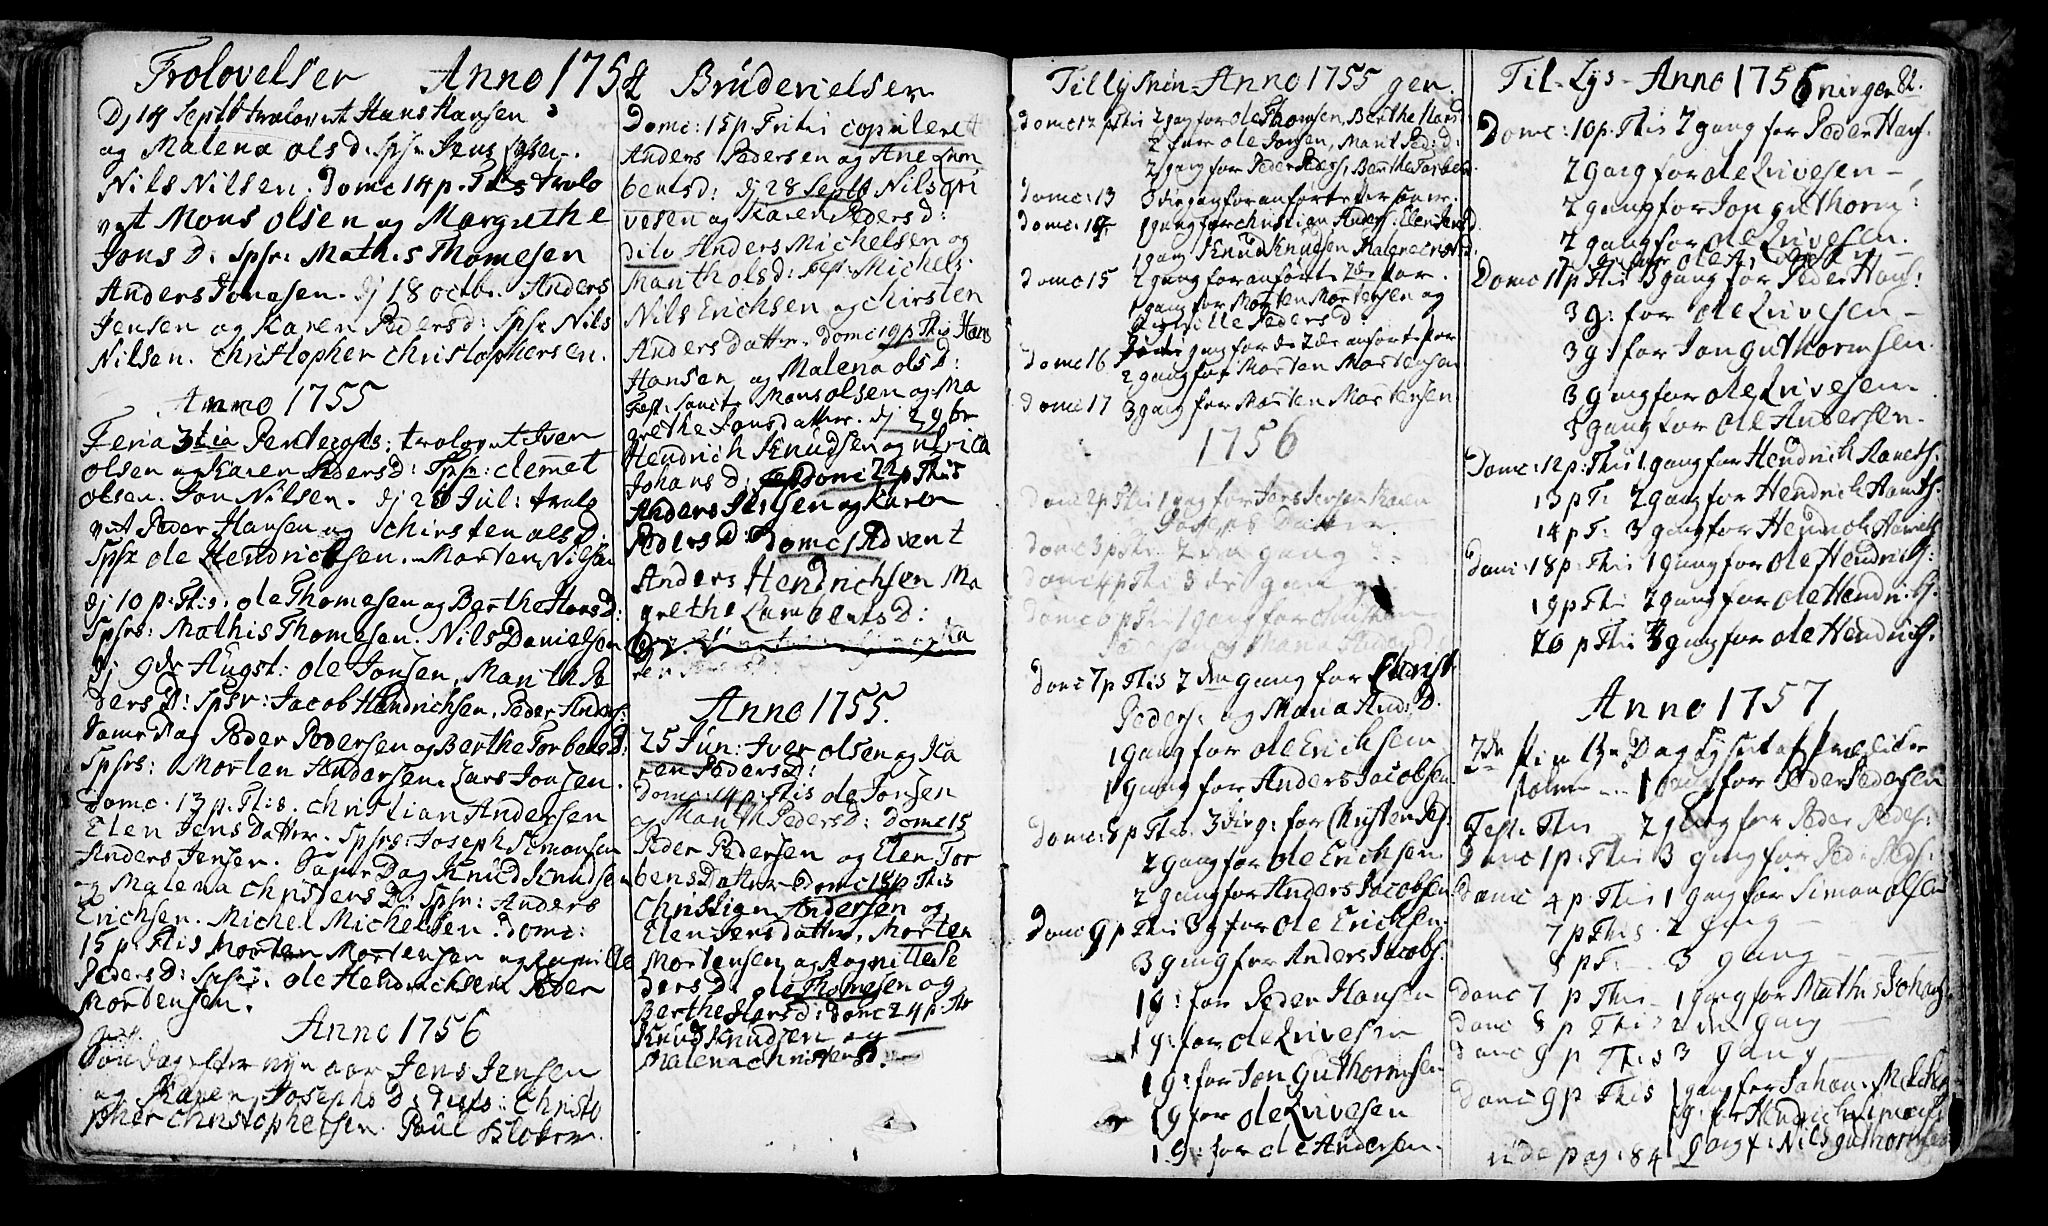 Trolovelser Anno 1754
Dj 14 Septb trolovet Hans Hansen
og Malena ols d: Spsr Jens
Nils Nilsen. Domc 14 p. This trolo
vet Mons olsen og Margrethe
Jons D: Spsr: Mathis Thomesen
Anders Jonesen. dj 18 octbr. Anders
Jensen og Karen Peders d: Spsr Nils
Nilsen. Christopher Christophersen.
Anno 1755
Feria 3tia Pentecost: trolovet Iver
olsen og Karen Peders d: Spsr: Clemet
olsen. Jon Nilsen. dj 26 Jul: trolo
vet Peder Hansen og Chirsten ols D:
Spsr ole Hendrichsen. Morten Nilsen
dj 10 p. This. ole Thomesen og Berthe Hans D:
Spsrs: Mathis Thomesen. Nils Danielsen
dj 9de Augst: ole Jonsen, Marith Pe
ders D: Spsr: Jacob Hendrichsen, Peder Anders:
Same Dag Peder Pedersen og Berthe Torbens D:
Spsrs: Morten Andersen. Lars Jonsen.
Domc. 13 p. This. Christian Andersen
Elen Jens Datter. Spsrs: Joseph Simonsen
Anders Jensen. Same Dag Knud Knudsen
og Malena Christens D: Spsr: Anders
Erichsen. Michel Michelsen. Domc:
15 p. This Morten Mortensen og Ragnille
Peders D: Spsr: ole Hendrichsen Peder
Mortensen.
Anno 1756
Søndag efter nyn aar Jens Jensen
og Karen Josephs D: Test: Christo
pher Christophersen. Paul

Bruderielser
Domc: 15 p. Tritis copuleret
Anders Pedersen og Ane Lum
bentsd: dj 28 Septb Nils
vesen og Karen Peders d:
dito Anders Michelsen og
Marith ols d: Fest: Michels.
Nils Erichsen og Chirsten
Anders datter. Domc 19 p. This Hans
Hansen og Malena ols D:
Fest: Mons olsen og Ma
grethe Jonsdatter. dj 2 9br
Hendrich Knudsen og ulrica
Johans d: Domc 22 p This
Anders Nilsen og Karen
Peders D: Domc 1 Advent
Anders Hendrichsen Ma
grethe Lambents D:
Anno 1755.
25 Jun: Iver olsen og Ka
ren Peders D:
Domc: 14 p. This ole Jonsen
og Marith Peders D: Domc 15
Peder Pedersen og Elen Tor
bens Datter Domc 18 p This
Christian Andersen og
Elen Jens datter, Morten
Mortensen og Ragnille Pe
ders D: ole Thomesen og
Berthe Hans d: Domc 24 p. This
Knud Knudsen og
Malena Christens d:

Tillysnin- Anno 1755 ger.
Domc 12 p This 2 gang for ole Thomsen, Berthe Hans d
2 for ole Jonsen, Marit Ped: d:
2 gang for Peder Peders, Berthe Torbens
Domc: 13 3die gang for anførte Personer:
Domc: 14 1 gang for Christian Anders: Elen Jens D
1 gang Knud Knudsen Malene
Domc 15 2 gang for anførte 2de par.
1 gang for Morten Mortensen og
Ragnille Peders d:
Domc 16 3die gang for de 2de anførte par
2 gang for Morten Mortensen
Domc 17 3 gang for Morten Mortensen
1756
Domc 2 p This 1 gang for Jens Jensen Karen
Josephs Datter
Domc 3 p This 2den gang
Domc 4 p This 3de gang
Domc 6 p This 1 gang for Christen
Pedersen og Maria Anders d:
Domc 7 p This 2den gang for Christ
Peders: og Maria Anders D.
1 gang for ole Erichsen
1 gang for Anders Jacobsen
Domc: 8 p This 3die g: for Christen Peds:
2 gang for ole Erichsen
2 gang for Anders Jacobsen
Domc 9 p This 3 g for ole Erichsen:
3 gang for Anders Jacobs:
1 g: for Peder Hansen
1 g: for ole Livesen
1 g: for Jon Guthormsen
1 g for ole Livesen
1 g: for ole Andersen.

Til-Lys- Anno 1756 ninger 82.
Domc: 10 p. This 2 gang for Peder Hans.
2 gang for ole Livesen -
2 gang for Jon guthorm:
2 gang for ole Livesen.
Domc 11 p This 3 gang for Peder Hans:
3 g: for ole Livesen -
3 g: for Jon guthormsen.
3 gang for ole Livesen.
3 gang for ole Andersen.
Domc: 12 p: This 1 gang for Hendrich
13 p T: 2 gang for Hendrich
14 p T: 3 gang for Hendrich
Domc: 18 p: This 1 gang for ole Hendrichs:
19 p This 2 gang for ole Hendrichs.
20 p This 3 gang for ole Hendrichs.
Anno 1757
2den Pin Dag lyst af
1 Gang for Peder Pedersen
Fest: This 2 gang for Peder Peders:
Domc 1 p: This 3 gang for Ped: Peds:
Domc 4 p This 1 gang for Simon olsen
7 p This. 2 gang -
8 p T: 3 gang -
Domc 7 p This - 1 gang for Mathis
Domc 8 p This 2den gang -
Domc 9 p This 3 gang -
Domc 9 p This 1 gang for Johan
g: for Hendrich Simons
vide pag: 84 1 gang f: Nils guthormsen